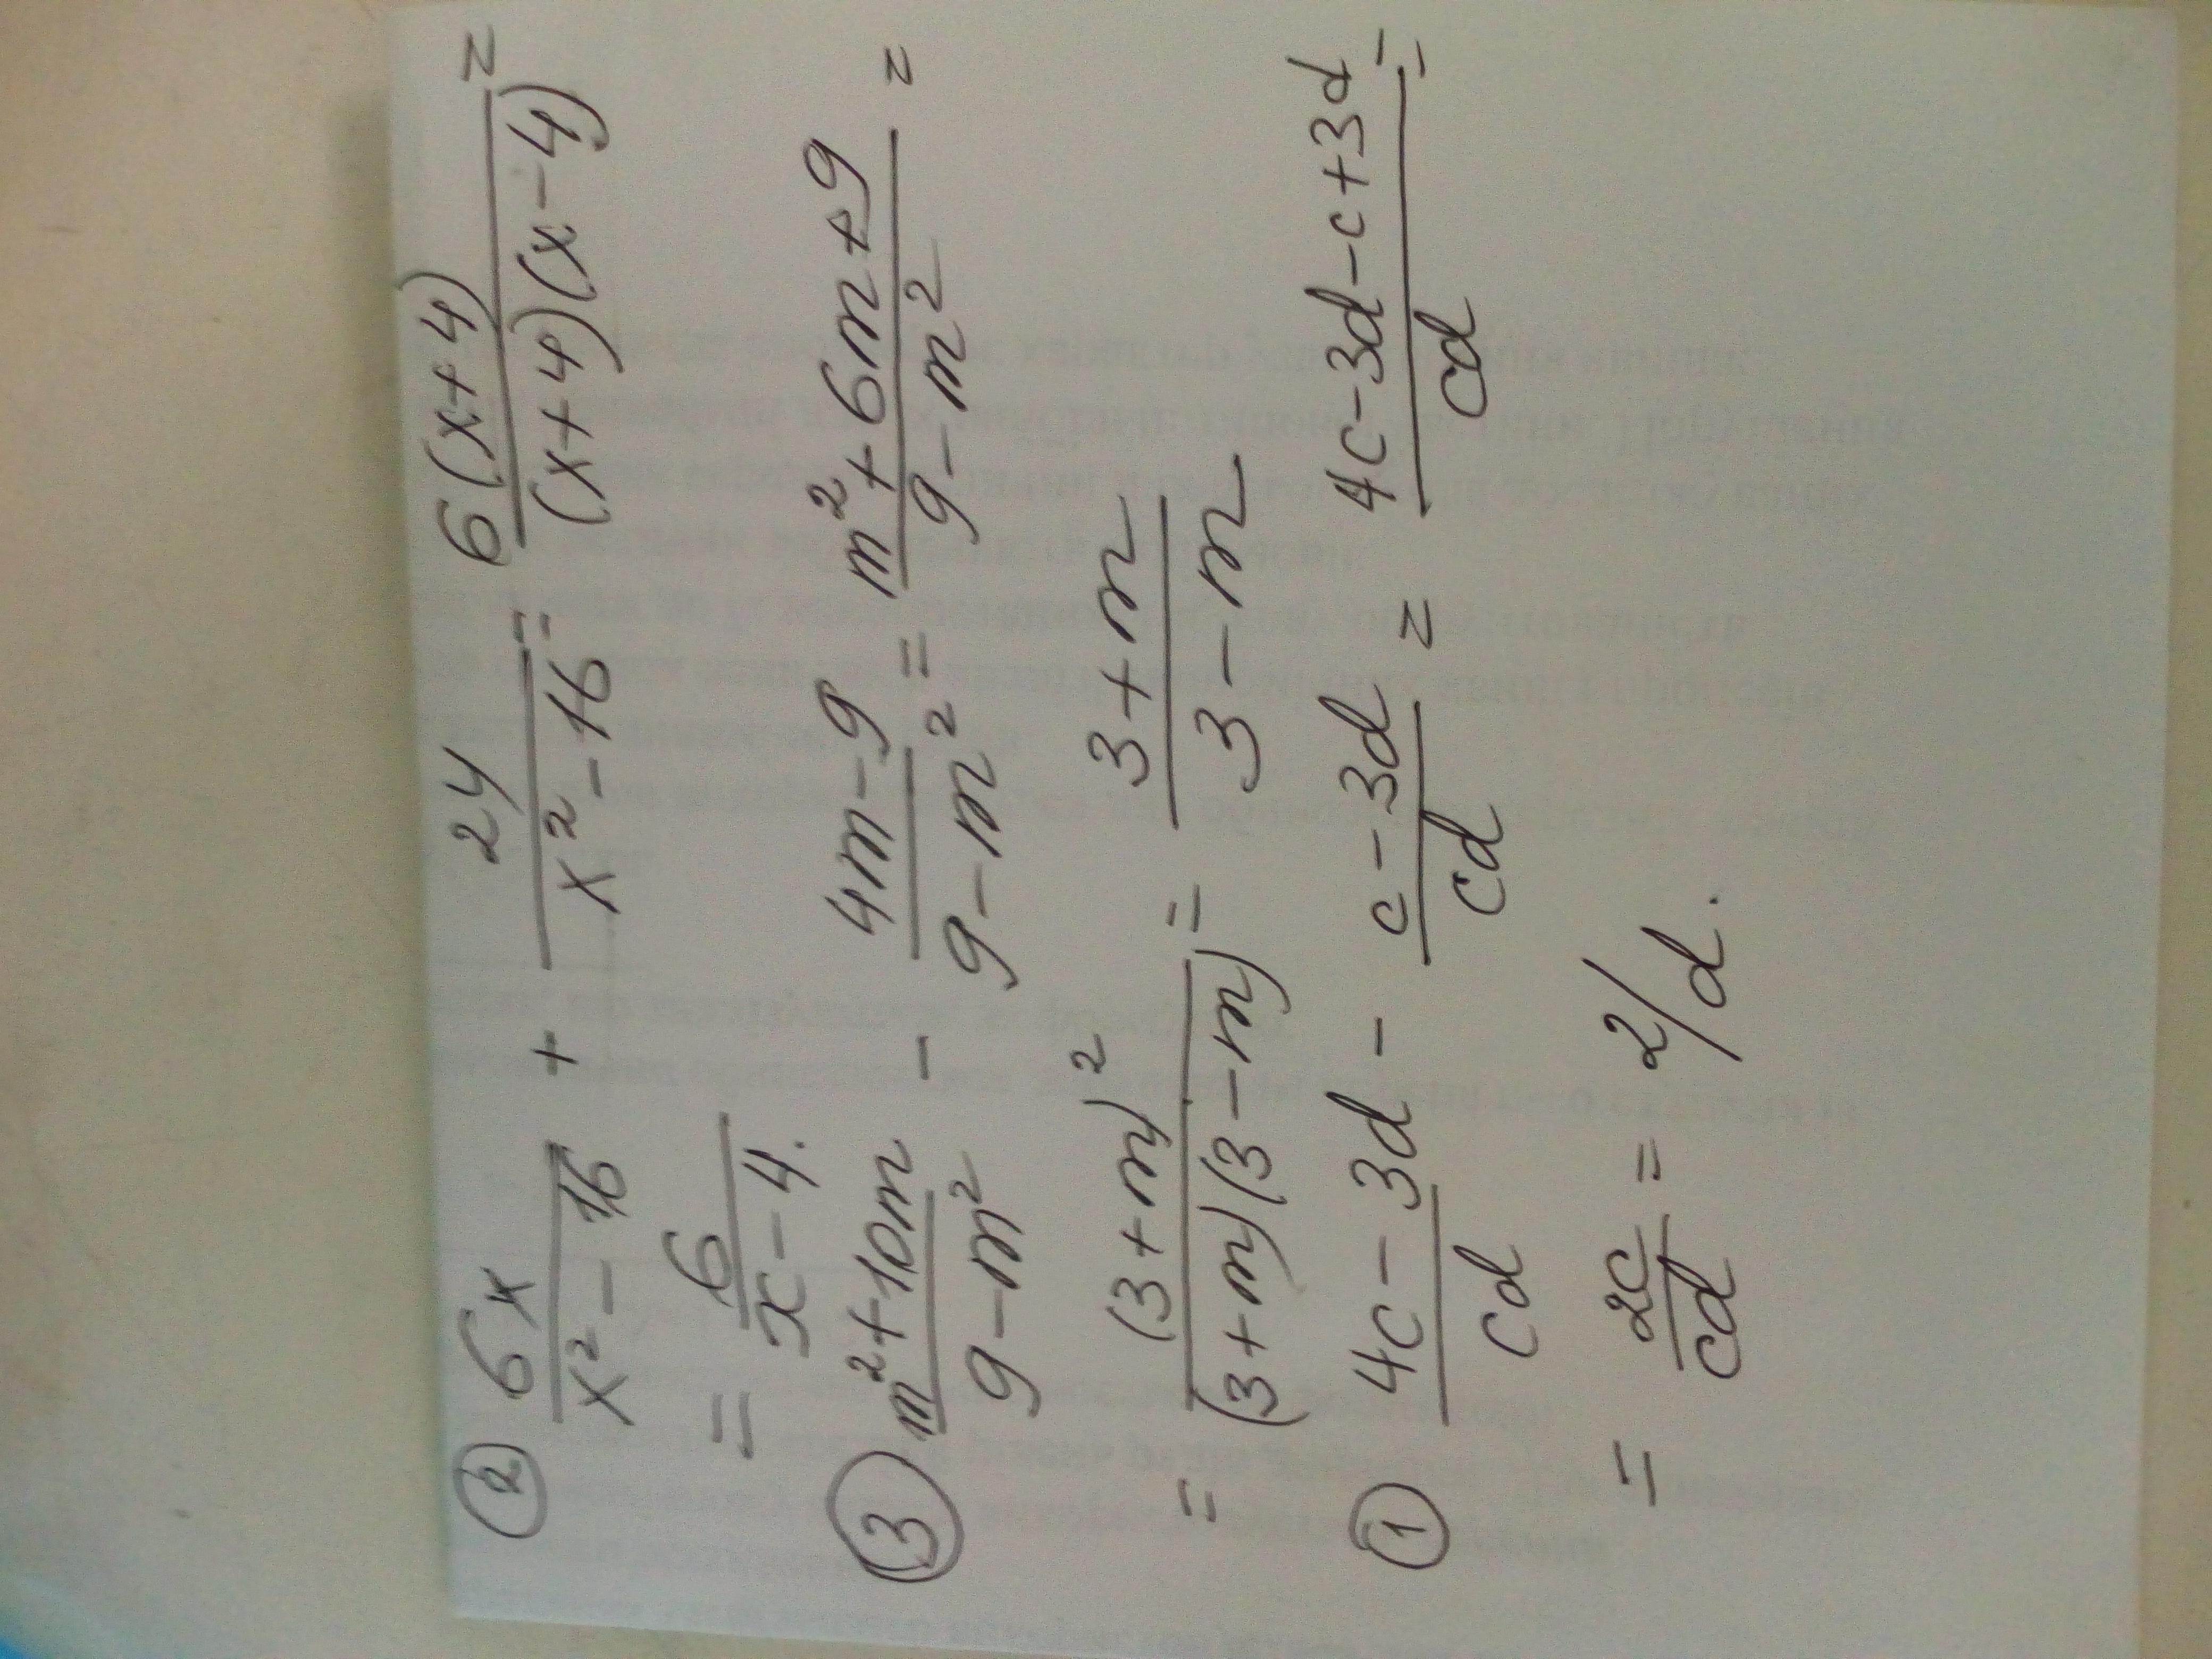 ② 6x/(x² - 16) + 24/(x² - 16) = 6(x+4)/((x+4)(x-4)) =
= 6/(x - 4).
③ (m² + 10m)/(9 - m²) - (4m - 9)/(9 - m²) = (m² + 6m + 9)/(9 - m²) =
= (3 + m)²/((3 + m)(3 - m)) = (3 + m)/(3 - m)
① (4c - 3d)/cd - (c - 3d)/cd = (4c - 3d - c + 3d)/cd =
= 2c/cd = 2/d.